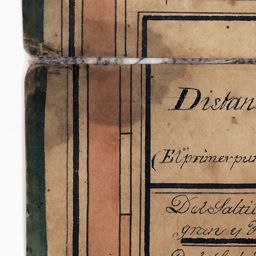 Distan
(El primer pun
Del Saltil
gran y
Del Sal